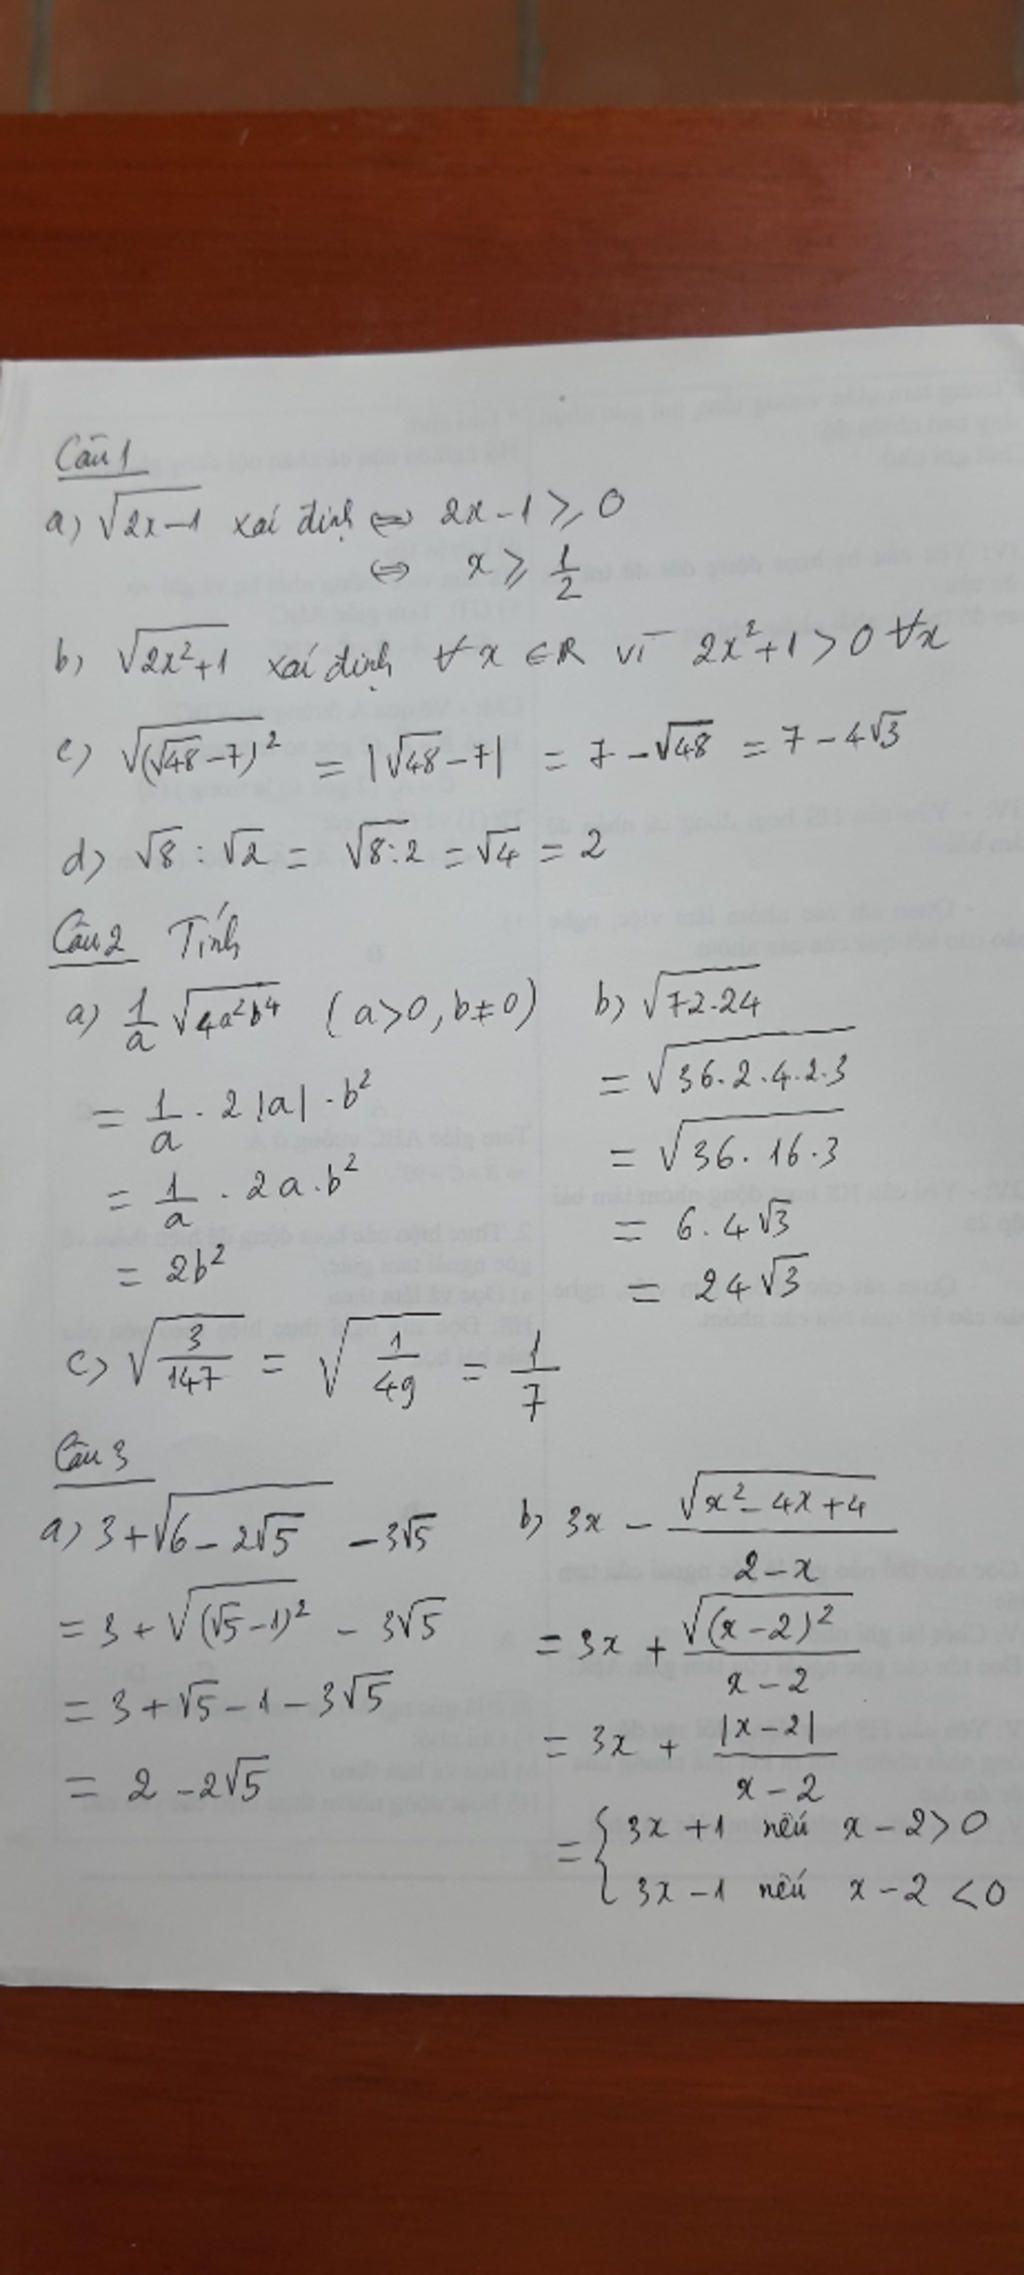 Câu 1
a) √(2x-1) xác định ⇔ 2x-1 ≥ 0
⇔ x ≥ 1/2
b) √(2x²+1) xác định ∀x ∈ R vì 2x²+1 > 0 ∀x
c) √((√48-7)²) = |√48-7| = 7-√48 = 7-4√3
d) √8 : √2 = √(8:2) = √4 = 2
Câu 2 Tính
a) 1/a √(4a²b⁴) (a>0, b≠0)
= 1/a · 2|a| · b²
= 1/a · 2a · b²
= 2b²
b) √(72·24)
= √(36·2·4·2·3)
= √(36·16·3)
= 6·4√3
= 24√3
c) √(3/147) = √(1/49) = 1/7
Câu 3
a) 3+√(6-2√5) -3√5
= 3+√((√5-1)²) - 3√5
= 3+√5-1-3√5
= 2-2√5
b) 3x - √(x²-4x+4)/(2-x)
= 3x + √((x-2)²)/(x-2)
= 3x + |x-2|/(x-2)
= { 3x+1 nếu x-2>0
3x-1 nếu x-2<0